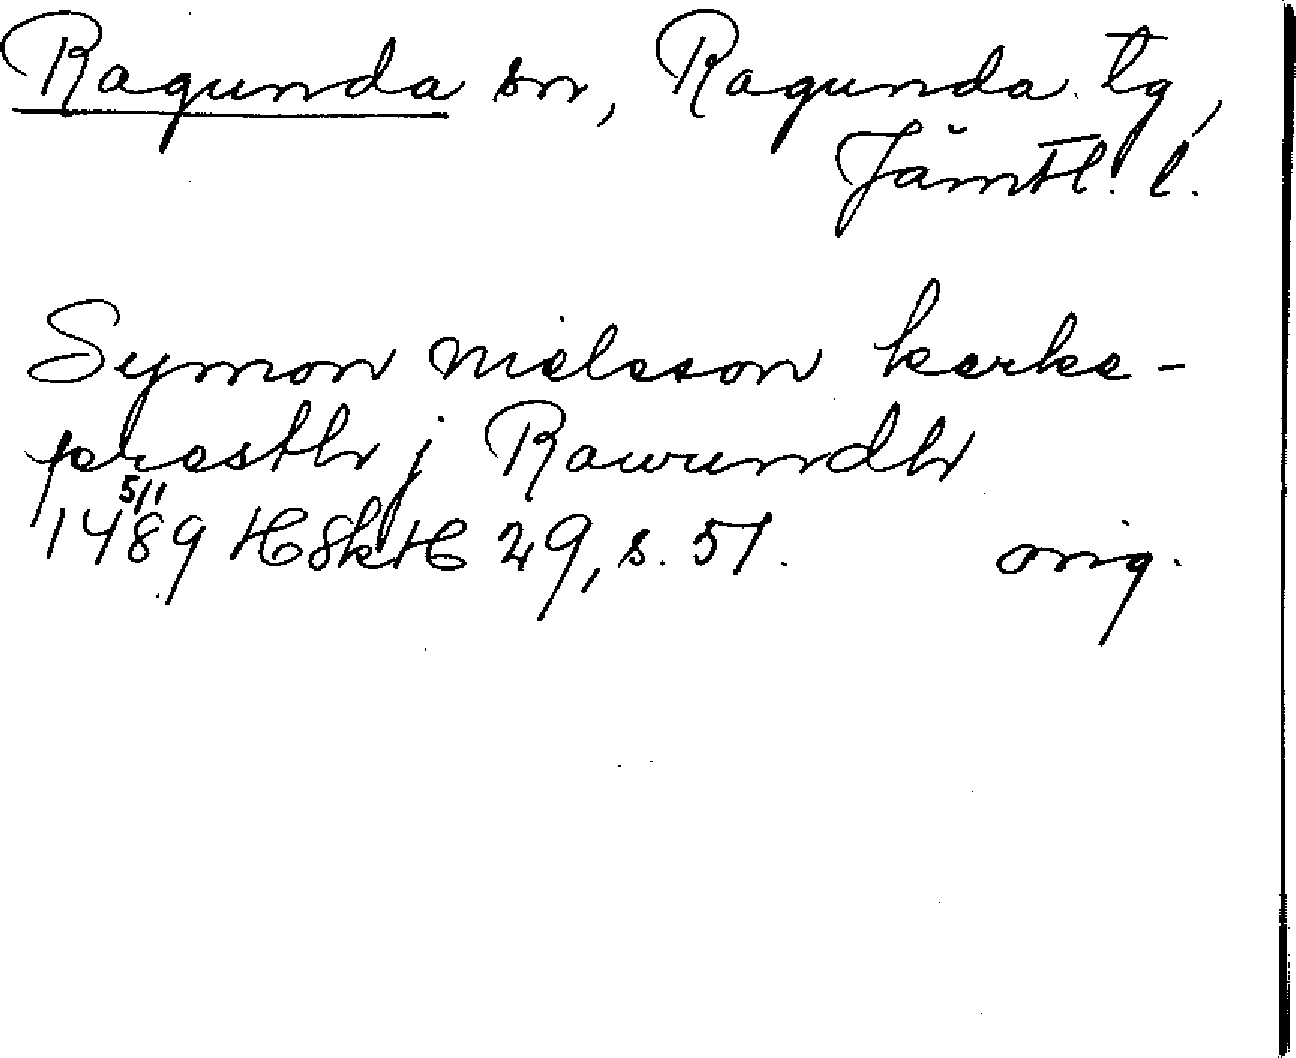 Ragunda sn, Ragunda tg,
Jämtl. l.
Symon nielsson kerke-
presth j Rawundh
5/1
1489 HSkH 29, s. 51. orig.